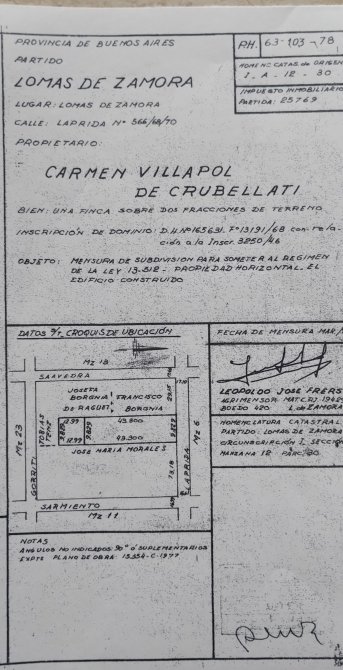 PROVINCIA DE BUENOS AIRES
PARTIDO
LOMAS DE ZAMORA
LUGAR: LOMAS DE ZAMORA
CALLE: LAPRIDA Nº 566/68/70
PROPIETARIO:
CARMEN VILLAPOL
DE CRUBELLATI
BIEN: UNA FINCA SOBRE DOS FRACCIONES DE TERRENO
INSCRIPCIÓN DE DOMINIO: D.H. Nº165631. Fº13191/68 con rela-
ción a la Inscr. 3250/46
OBJETO: MENSURA DE SUBDIVISION PARA SOMETER AL REGIMEN
DE LA LEY 13-512.- PROPIEDAD HORIZONTAL, EL
EDIFICIO CONSTRUIDO
PH. 63-103-78
NOMENC CATAS. de ORIGEN
I. A. 12 - 30
IMPUESTO INMOBILIARIO
PARTIDA: 25769
DATOS s/t. CROQUIS DE UBICACIÓN
Mz 18
SAAVEDRA
JOSEFA
BORGNIA
DE RAGUET
FRANCISCO
BORGNIA
Mz 23
GORRITI
TOBIAS
12.99
12.99
9.829
43.300
43.300
JOSE MARIA MORALES
LAPRIDA
Mz 6
SARMIENTO
Mz 11
FECHA DE MENSURA MAR/
LEOPOLDO JOSE FRERS
AGRIMENSOR MAT C.P.I.
BOEDO 420 L. de ZAMORA
NOMENCLATURA CATASTRAL
PARTIDO: LOMAS DE ZAMORA
CIRCUNSCRIPCIÓN I, SECCIÓN
MANZANA 12 PARC. 30
NOTAS
ANGULOS NO INDICADOS 90º ó SUPLEMENTARIOS
EXPTE PLANO DE OBRA: 15.554-C-1977